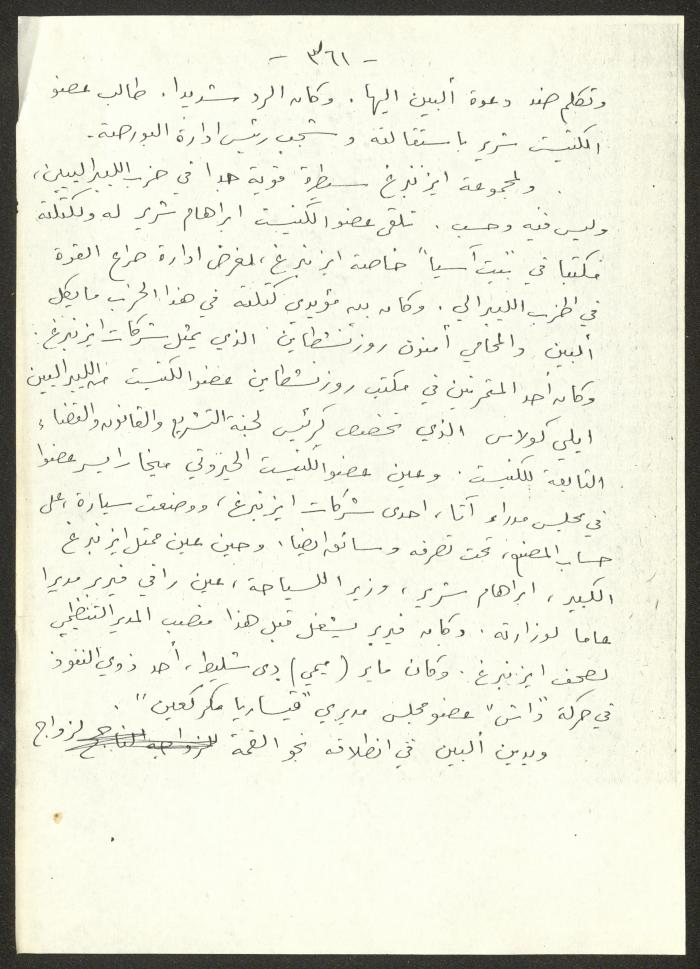 - ٣٦١ -
وتكلم ضد دعوة ألبين اليها. وكان الرد شديدا. طالب عضو
الكنيست شرير باستقالته وشجب رئيس ادارة البورصة.
ولمجموعة ايزنبرغ سيطرة قوية جدا في حزب الليبراليين،
وليس فيه وحسب. تلقى عضو الكنيست ابراهام شرير له ولكتلته
مكتبا في "بيت آسيا" خاصة ايزنبرغ، لغرض ادارة صراع القوة
في الحزب الليبرالي. وكان بين مؤيدي كتلته في هذا الحزب مايكل
ألبين والمحامي أمنون روزنشطاين الذي يمثل شركات ايزنبرغ.
وكان أحد المتمرنين في مكتب روزنشطاين عضو الكنيست من الليبراليين
ايلي كولاس الذي كرئيس لجنة التشريع والقانون والقضاء
التابعة للكنيست. وعين عضو الكنيست الحيروتي ميخا رايسر عضوا
في مجلس مدراء آتا، احدى شركات ايزنبرغ، ووضعت سيارة، على
حساب المصنع، تحت تصرفه وسائق ايضا. وحين عين ممثل ايزنبرغ
الكبير، ابراهام شرير، وزيرا للسياحة، عين رافي فيربر مديرا
عاما لوزارته. وكان فيربر يشغل قبل هذا منصب المدير التنظيمي
لصحف ايزنبرغ. وكان ماير (ميمي) دي شليط، أحد ذوي النفوذ
في حركة "داش" عضو مجلس مديري "قيساريا مكركعين".
ويدين ألبين في انطلاقه نحو القمة لزواج